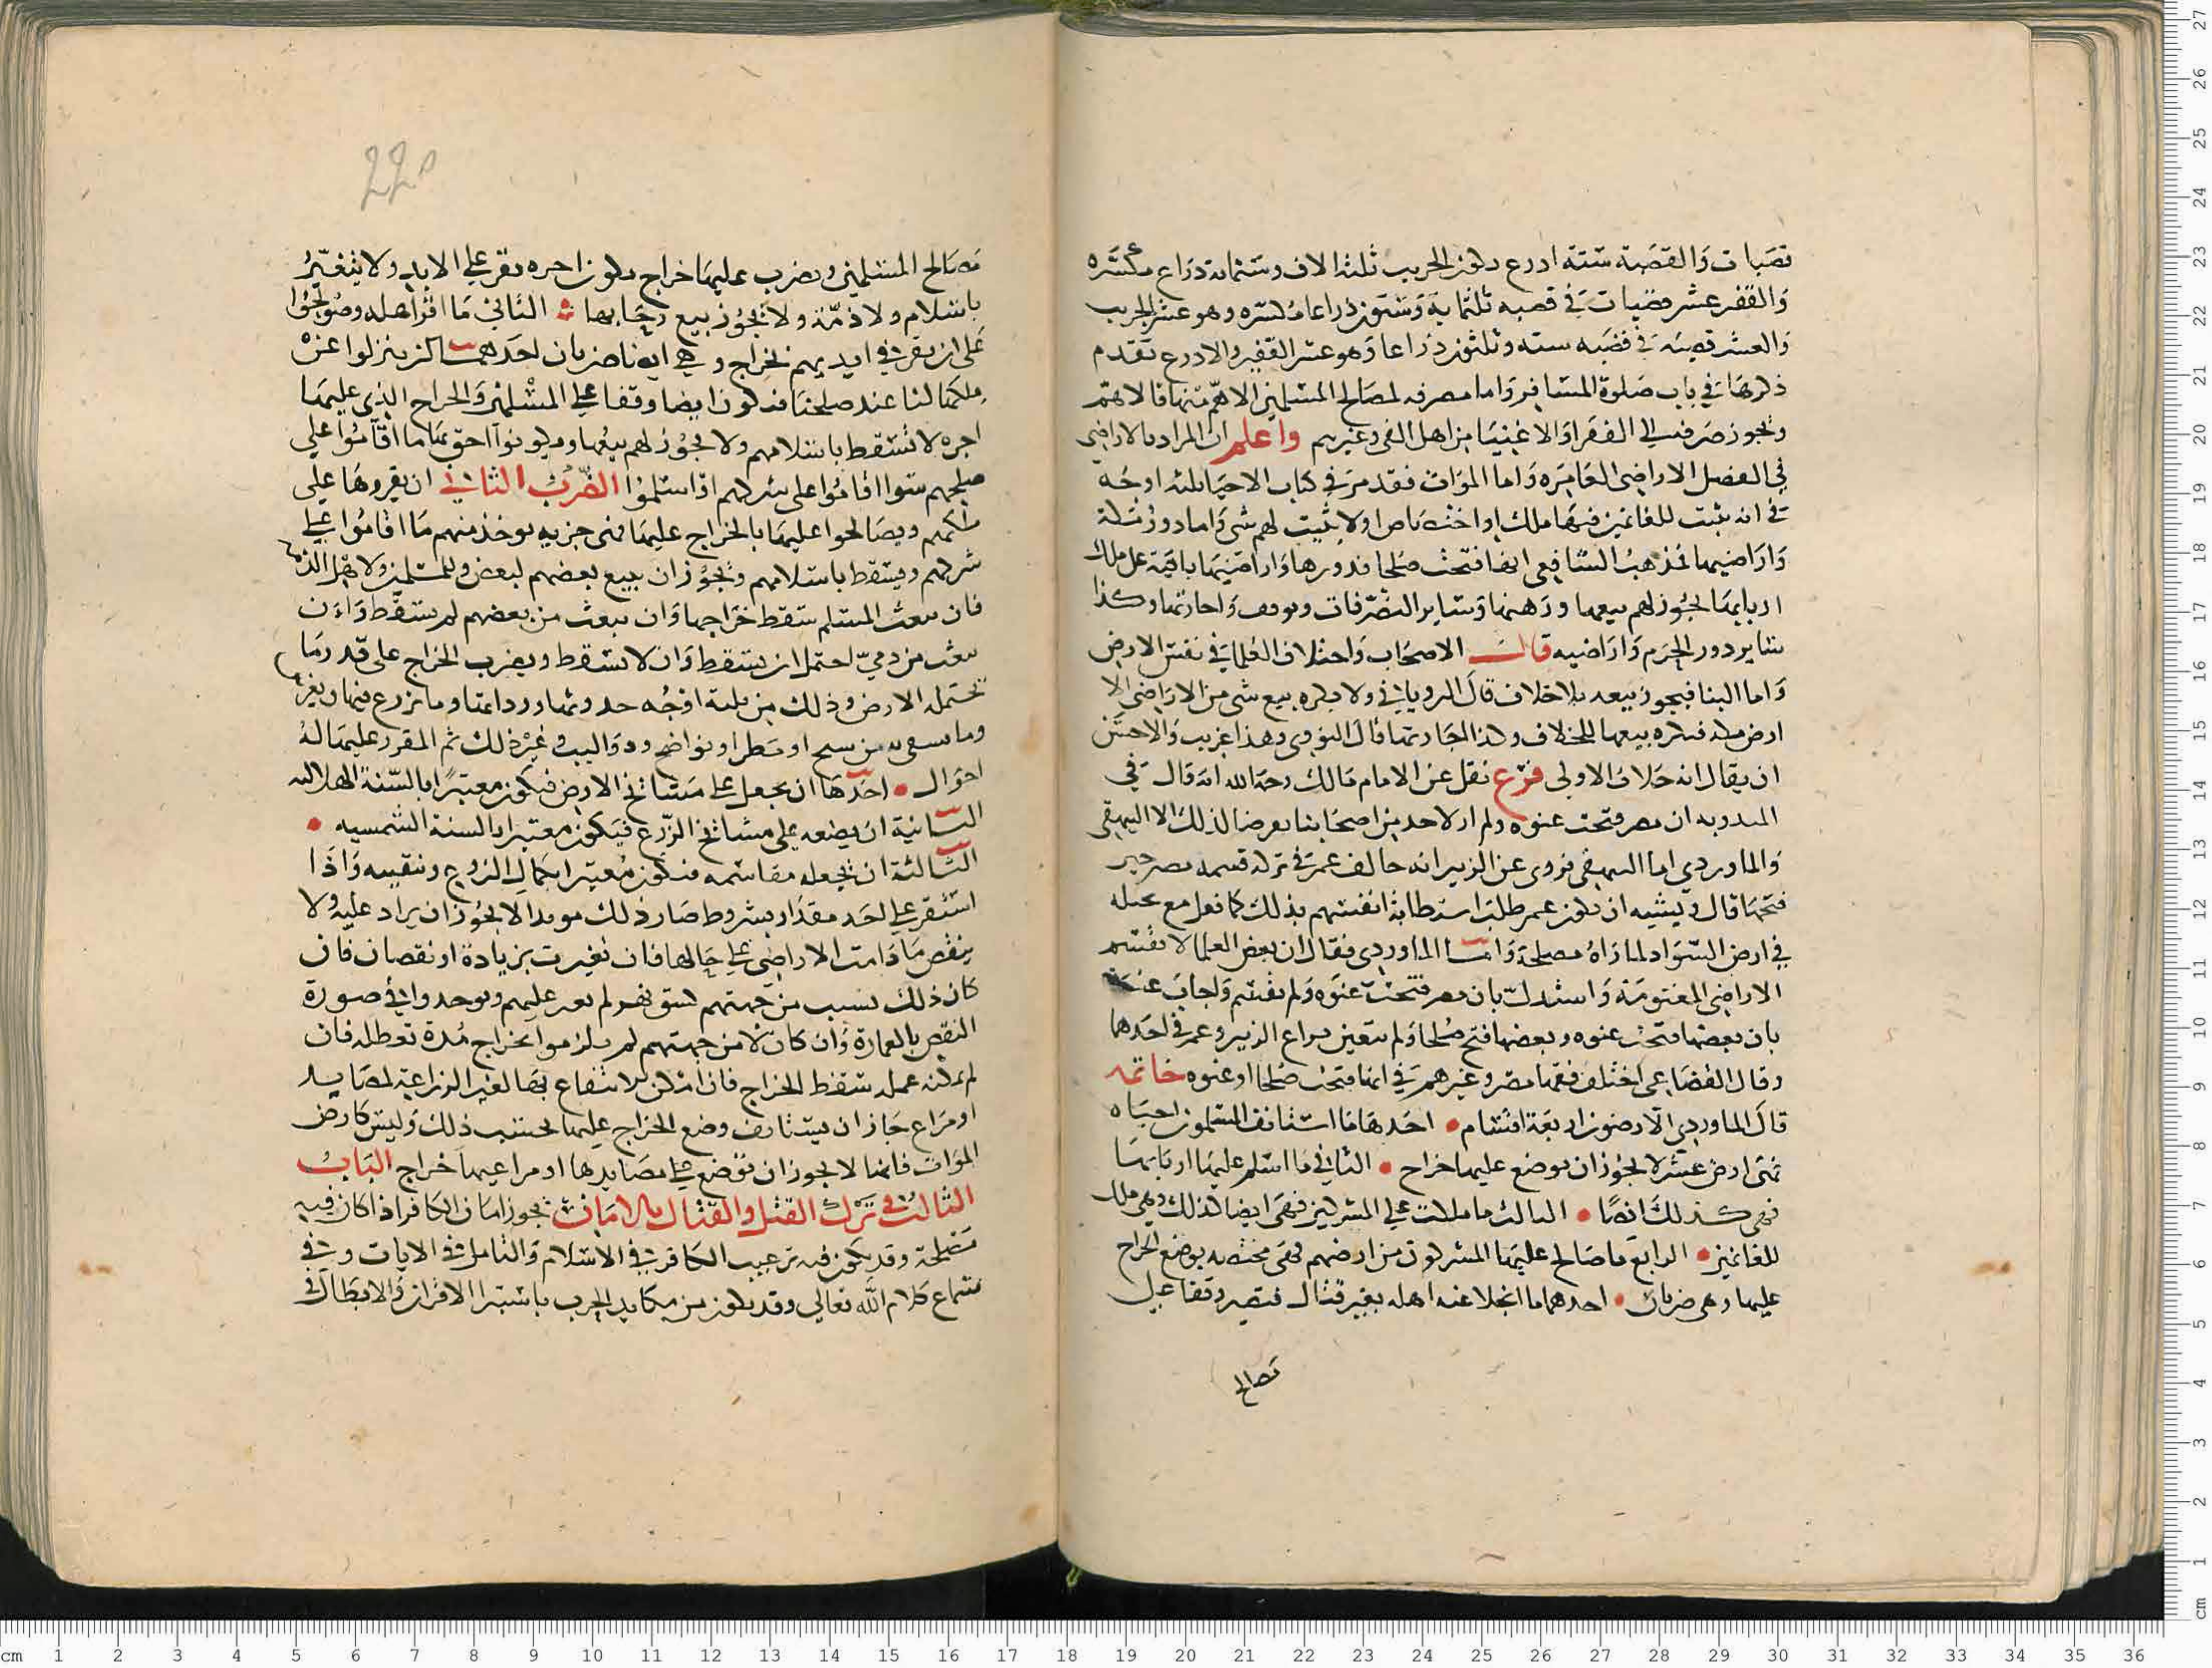 قصبات وَالقصَبة ستة ادرع فيكون الجريب ثلثة الاف وستماية ذراع مكسّره
وَالقفيز عشر قصبات في قصبه ثلثماية وَستون ذراعا مُكسّره وهو عشر الجريب
وَالعشر قصبه في قصَبه سته وثلثون ذراعا وَهو عشر القفيز والادرع تقدم
ذكرهَا في باب صَلوة المسَافر وَاما مصرفه لمصَالح المسلمين الاهم منها فالاهم
ويجوز صَرفه الى الفقرا وَالاغنيَا من اهل الفي وغيرهم واعلم ان المراد بالاراضي
في الفصل الاراضي العَامرَه وَاما الموَات فقد مرَ في كتاب الاحيَا ثلثه اوجُه
في انه يثبت للغانمين فيها ملك او اختصَاص او لا يثبت لهم شي وَاما دور مكة
وَارَاضيها فمذهبُ الشافعي انها فتحت صُلحا فدورها وَاراضيهَا باقية على ملك
اربابهَا يجُوز لهم بيعها ورَهنها وَسَاير التصّرفات ويوقف وَاجارتها وكذا
سَاير دور الحرَم وَارَاضيه قالَ الاصحَاب وَاختلاف العُلما في نفس الارض
وَاما البنا فيجوز بيعه بلا خلاف قالَ الروياني ولا يكره بيع شي من الارَاضي الا
ارض مكه فيكره بيعها للخلاف وكذا اجارتها قالَ النووي وهذا غريب وَالاحسَن
ان يقال انه خلافُ الاولى فرع نقل عن الامام مَالك رحمة الله انه قال في
المدونه ان مصر فتحت عنوه ولم ار لاحد من اصحَابنا تعرضا لذلك الا البيهقي
وَالماوردي اما البيهقي فروى عن الزبير انه خالف عمر في ترك قسمه مصر حين
فتحهَا قال ويشبه ان يكون عمر طلبَ استطابة انفسهم بذلك كما فعل مع بجيله
في ارض السّوَاد لما رَاهُ مصلحة وَامّا الماوردي فقال ان بعض العلما لا تقسم
الاراضي المغنومة وَاستدلّ بان مصر فتحت عنوَه وَلم تقسم وَاجابَ عنه
بان بعضها فتحت عنوه وبعضها فتح صُلحا وَلم يتعين نزاع الزبير وعمر في احَدهما
وقال القضَاعي اختلف فقهَا مصر وغيرهم في انها فتحت صُلحا او عنوه خاتمه
قالَ الماوردي الارضون اربعَة اقسَام • احَدهَا مَا استانف المسلمون احيَاه
فهى ارض عشر لا يجُوز ان يوضع عليها خراج • الثاني مَا اسلم عليهَا اربَابهَا
فهي كذلك ايضًا • الثالث ما ملكت على المشركين فهي ايضا كذلك وهي ملك
للغانمين • الرابع ما صَالح عليهَا المشركون من ارضهم فهي مختصه بوضع الخراج
عليها وهي ضربان • احدهما ما انجلا عنه اهله بغير قتال فتصير وقفا على
مَصَالح
مَصَالح المسلمين ويضرب عليهَا خراج يكون اجره يقر على الابد ولا يتغيّرُ
باسلام ولا ذمّة ولا يجُوز بيع رقابها الثاني مَا اقر اهله وصُولحُوا
عَلى ان يقر في ايديهم بخراج وهي ايضا ضربان احَدهما ان ينزلوا عن
ملكها لنا عند صلحنا فيكون ايضا وقفا على المسْلمين وَالخراج الذي عليهَا
اجره لا تسقط باسلامهم ولا يجُوز لهم بيعُها ويكونوا احق بهَا ما اقامُوا على
صلحهم سَوا اقامُوا على شركهم او اسلمُوا الضّرب الثاني ان يقروهَا على
ملكهم ويصَالحوا عليهَا بالخراج عليهَا فهي جزيه توخذ منهم مَا اقامُوا على
شركهم ويسقط باسلامهم ويجُوز ان يبيع بعضهم لبعض وللمسلمين ولاهل الذمة
فان بيعت لمسلم سقط خرَاجها وَان بيعت من بعضهم لم يسقط وَان
بيعت من ذميّ احتمل ان يسقط وَان لا يسقط ويضرب الخراج على قدر مَا
تحتمله الارض وذلك من ثلثة اوْجُه جودتها ورداءتها وما يزرع فيها ويغرس
وما يسقى به من سيح او مَطر او نواضح ودوَاليب وغيرْ ذلك ثم المقرر عليهَا لهُ
احوَال • احَدهَا ان يجعل على مسَايح الارض فيكون معتبرًا بالسّنة الهلاليه
الثّانية ان يضعه على مسَايح الزّرع فيَكون معتبرا بالسنة الشمسيه •
الثّالثة ان يجعله مقاسَمه فيكون مُعتبرا بكمالِ الزرع وتنقيته وَاذَا
استقر على احَد مقدّار بشروط صَار ذلك موبدا لا يجُوز ان يزاد عليه ولا
ينقص مَا دَامت الاراضي على حَالها فان تغيرت بزيادة او نقصان فان
كان ذلك بسبب من جهتهم كشق نهر لم يعد عليهم ويوخذوا في صورَة
النقص بالعمارة وَان كان لا من جهتهم لم يلزموا بخراج مُدة تعطله فان
لم يمكن عمله سقط الخراج فان امْكن الانتفاع بهَا لغير الزراعَة لمصَايد
او مرَاع جَاز ان يستانف وضع الخراج عليها بحسَب ذلك وَليسَ كارض
الموَات فانها لا يجوز ان توضع على مصَايدها او مراعيها خراج البَابُ
الثالث في تَرْك القتل والقتال بالامَان يجوز امَان الكافر اذا كان فيه
مَصْلحة وقد يكون فيه ترغيب الكافر في الاسْلام وَالتامل في الايات وفي
سَماع كلام الله تعالى وقد يكون من مكايد الحرب باسْتبرا الاقران وَالابطَال في